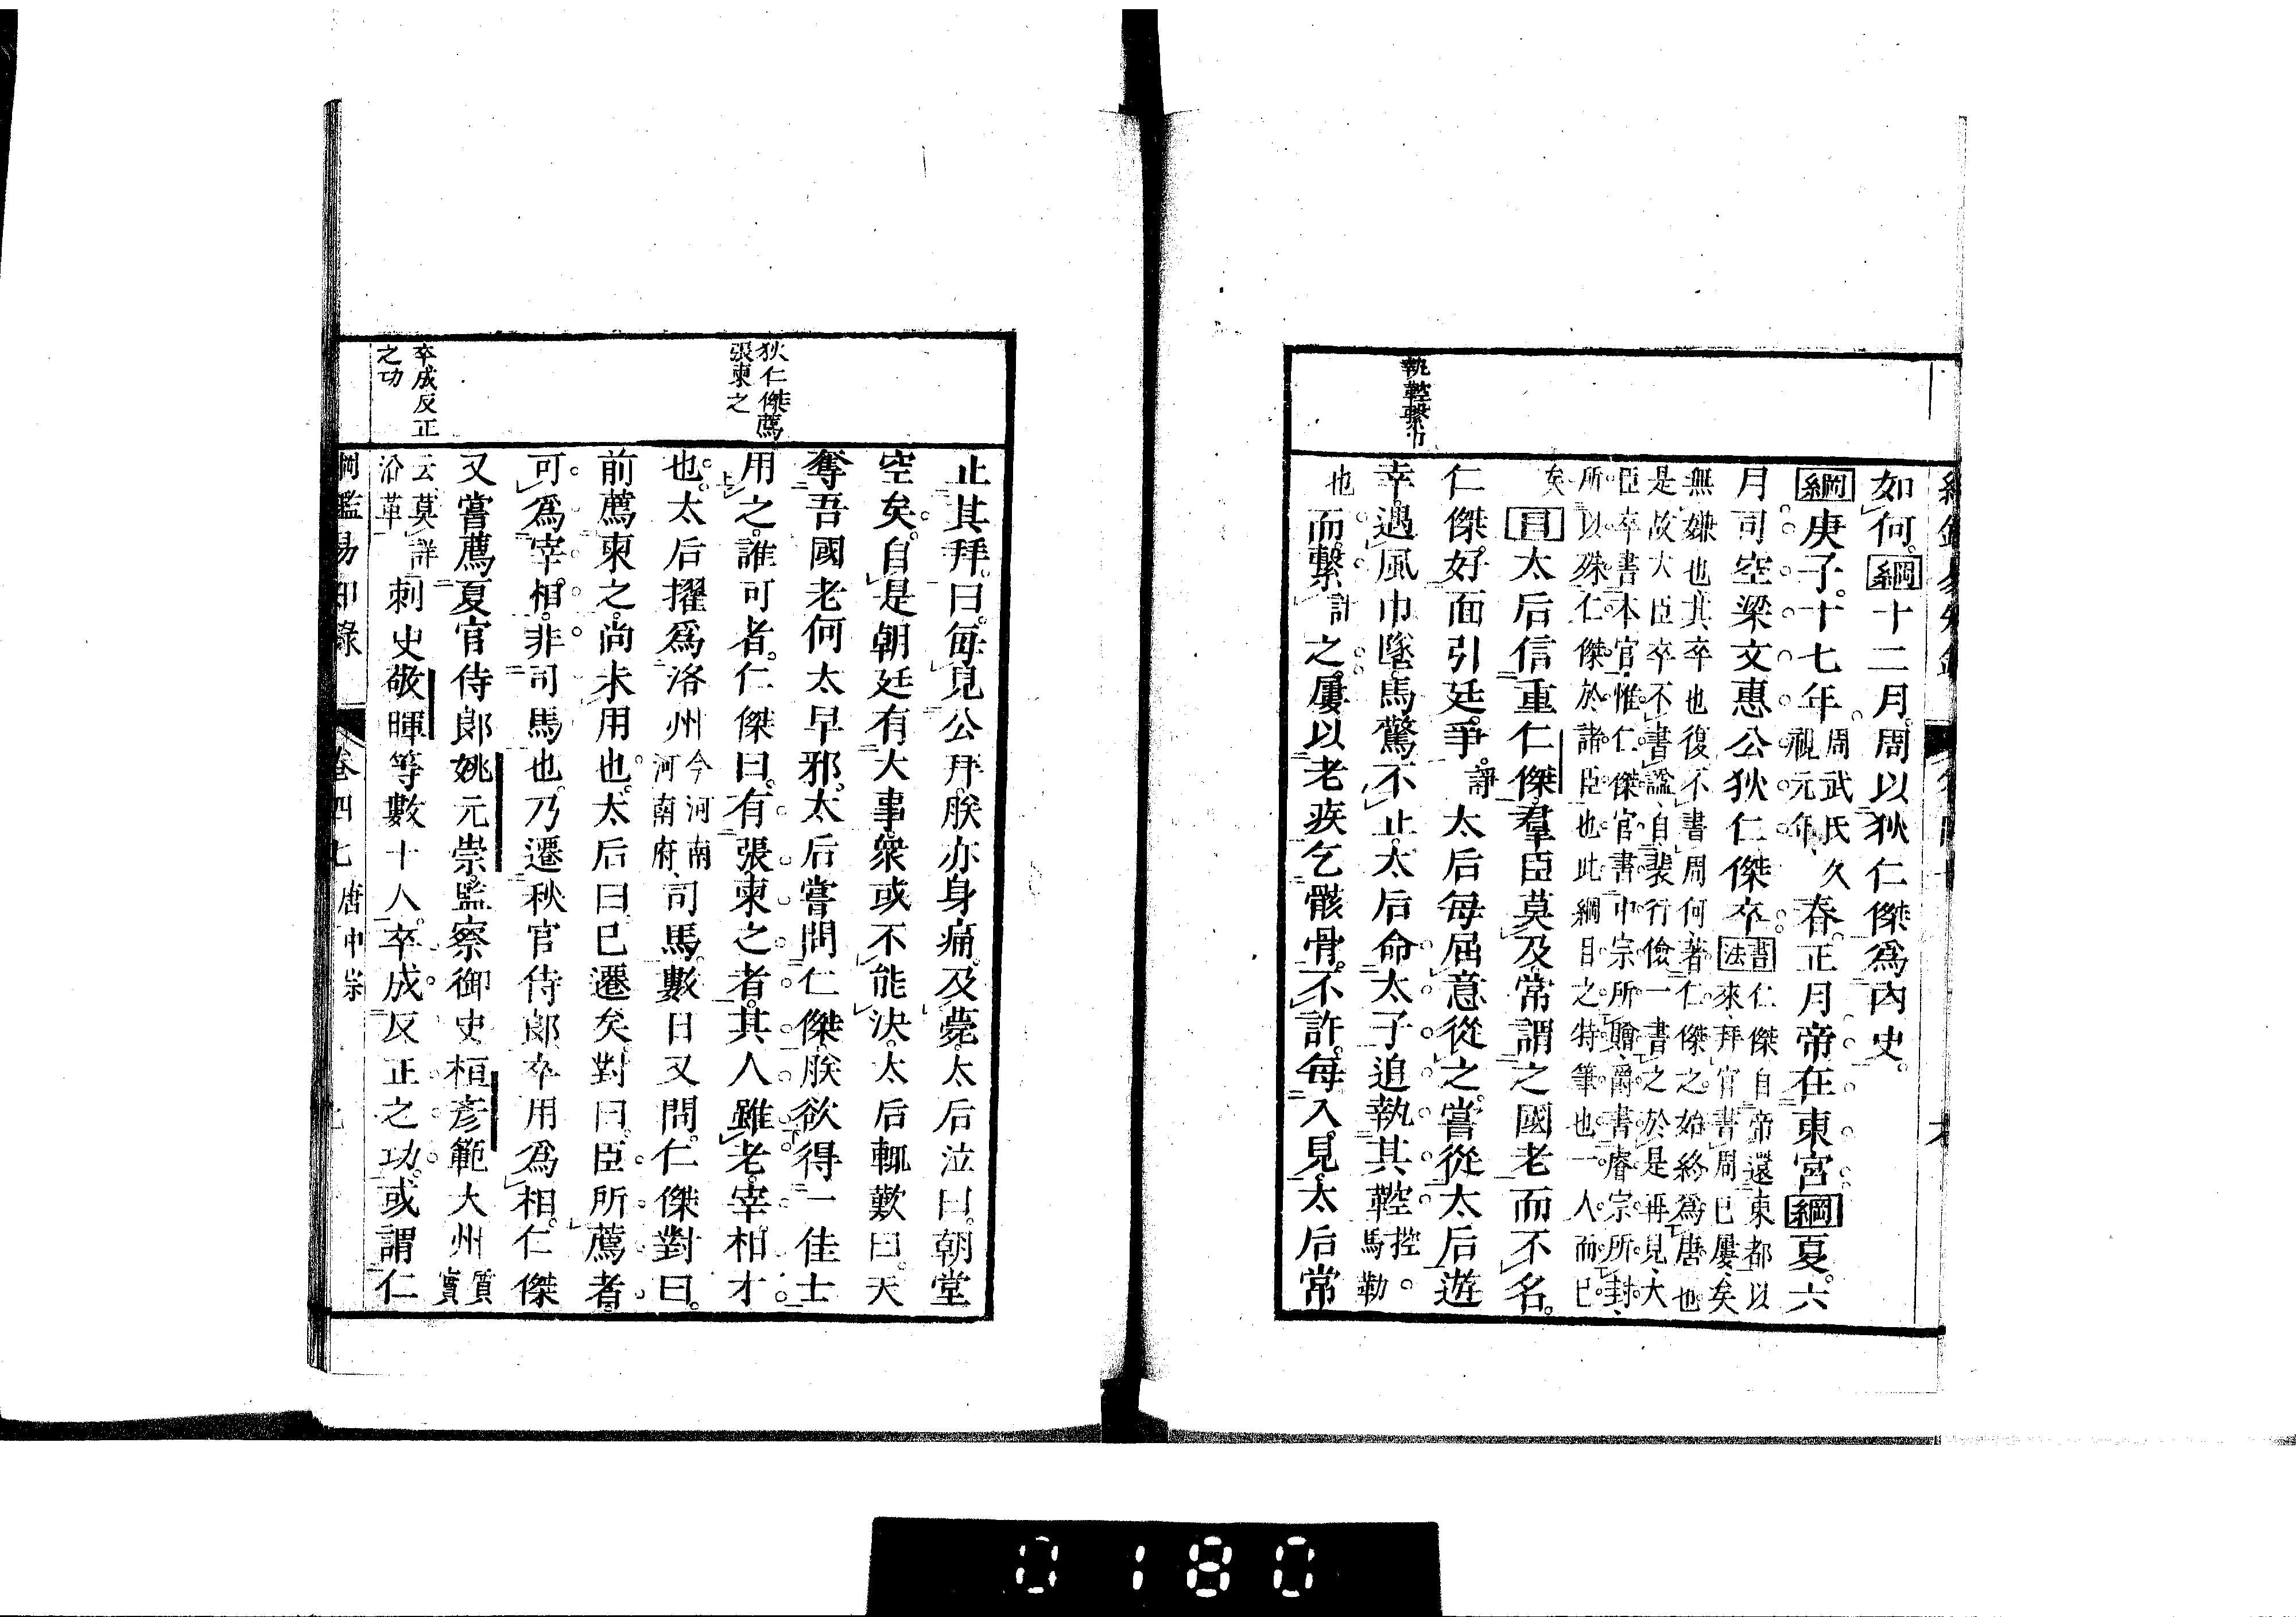 如何。綱十二月。周以狄仁傑爲內史。
綱庚子。十七年。周武氏久視元年。春。正月。帝在東宮。綱夏。六
月。司空梁文惠公狄仁傑卒。書法仁傑自帝還東都以來、拜官書周已屢矣
無嫌也、其卒也復不書周何、著仁傑之始終爲唐也
是故大臣卒不書諡、自裴行儉一書之於是再見、大
臣卒書本官、惟仁傑官書中宗所贈、爵書睿宗所封、
所以殊仁傑於諸臣也此綱目之特筆也一人而已
矣目太后信重仁傑。羣臣莫及常謂之國老而不名。
仁傑好面引廷爭。諍太后每屈意從之。嘗從太后遊
幸。遇風巾墜。馬驚不止。太后命太子追執其鞚控。馬勒
也。而繫計之。屢以老疾乞骸骨。不許。每入見。太后常
執鞚繫巾
止其拜。曰。每見公拜。朕亦身痛。及薨。太后泣曰。朝堂
空矣。自是朝廷有大事。衆或不能決。太后輒歎曰。天
奪吾國老何太早邪。太后嘗問仁傑。朕欲得一佳士
用之。誰可者。仁傑曰。有張柬之者。其人雖老。宰相才
也。太后擢爲洛州今河南河南府、司馬。數日又問。仁傑對曰。
前薦柬之。尚未用也。太后曰已遷矣。對曰。臣所薦者。
可爲宰相。非司馬也。乃遷秋官侍郎卒用爲相。仁傑
又嘗薦夏官侍郎姚元崇。監察御史桓彥範大州質實
云莫詳沿革刺史敬暉等數十人。卒成反正之功。或謂仁
狄仁傑薦
張柬之
卒成反正
之功
綱鑑易知錄 卷四七 唐中宗
0180